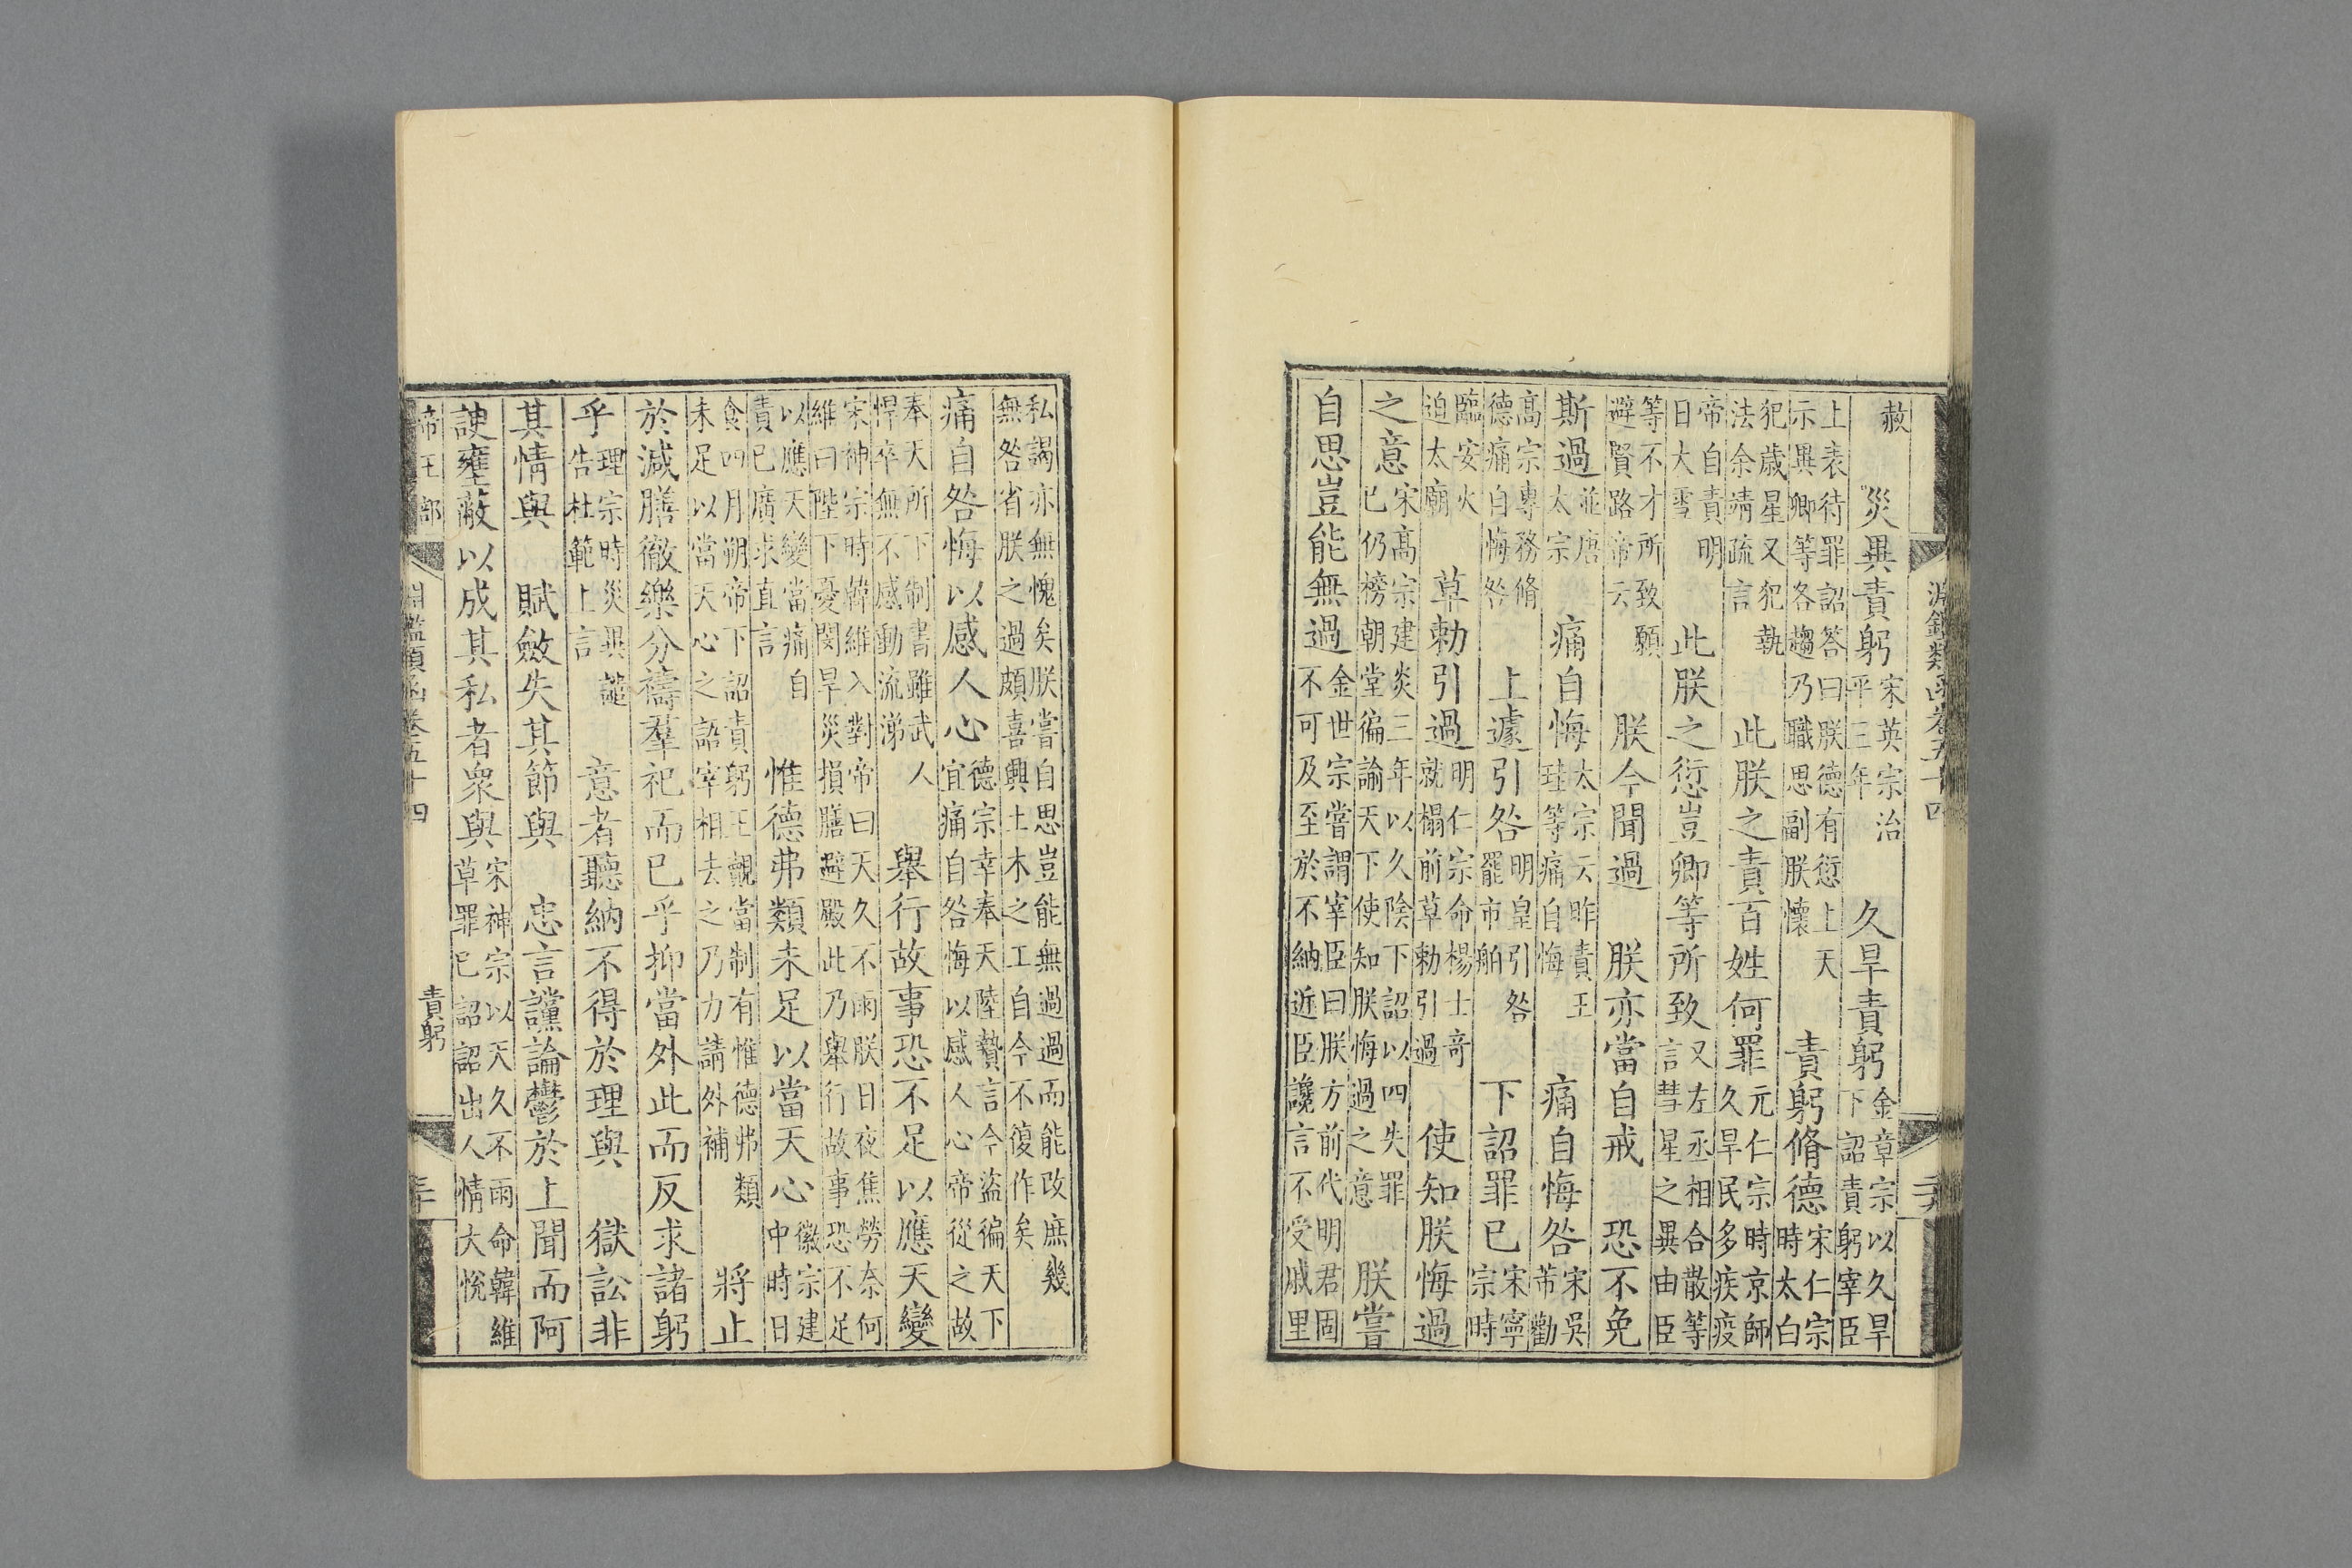 淵鑑類函卷五十四
赦　災異責躬　宋英宗治平三年　久旱責躬　金章宗以久旱下詔責躬宰臣
上表待罪詔答曰朕德有愆上天示異卿等各趨乃職思副朕懷　責躬脩德　宋仁宗時太白
犯歲星又犯執法余靖疏言　此朕之責百姓何罪　元仁宗時京師久旱民多疾疫
帝自責明日大雪　此朕之愆豈卿等所致　又左丞相合散等言彗星之異由臣
等不才所致願避賢路帝云　朕今聞過　朕亦當自戒　恐不免
斯過　並唐太宗　痛自悔　太宗云昨責王珪等痛自悔　痛自悔咎　宋吳芾勸
高宗專務脩德痛自悔咎　上遽引咎　明皇引咎罷市舶　下詔罪已　宋寧宗時
臨安火迫太廟　草勅引過　明仁宗命楊士奇就榻前草勅引過　使知朕悔過
之意　宋高宗建炎三年以久陰下詔以四失罪已仍榜朝堂徧諭天下使知朕悔過之意　朕嘗
自思豈能無過　金世宗嘗謂宰臣曰朕方前代明君固不可及至於不納近臣讒言不受戚里
私謁亦無愧矣朕嘗自思豈能無過過而能改庶幾無咎省朕之過頗喜興土木之工自今不復作矣
痛自咎悔以感人心　德宗幸奉天陸贄言今盜徧天下宜痛自咎悔以感人心帝從之故
奉天所下制書雖武人悍卒無不感動流涕　舉行故事恐不足以應天變
宋神宗時韓維入對帝曰天久不雨朕日夜焦勞奈何維曰陛下憂閔旱災損膳避殿此乃舉行故事恐不足
以應天變當痛自責已廣求直言　惟德弗類未足以當天心　徽宗建中時日
食四月朔帝下詔責躬王覿當制有惟德弗類未足以當天心之語宰相去之乃力請外補　將止
於減膳徹樂分禱羣祀而已乎抑當外此而反求諸躬
乎　理宗時災異譴告杜範上言　意者聽納不得於理與　獄訟非
其情與　賦斂失其節與　忠言讜論鬱於上聞而阿
諛壅蔽以成其私者衆與　宋神宗以天久不雨命韓維草罪已詔詔出人情大悅
帝王部　淵鑑類函卷五十四　責躬